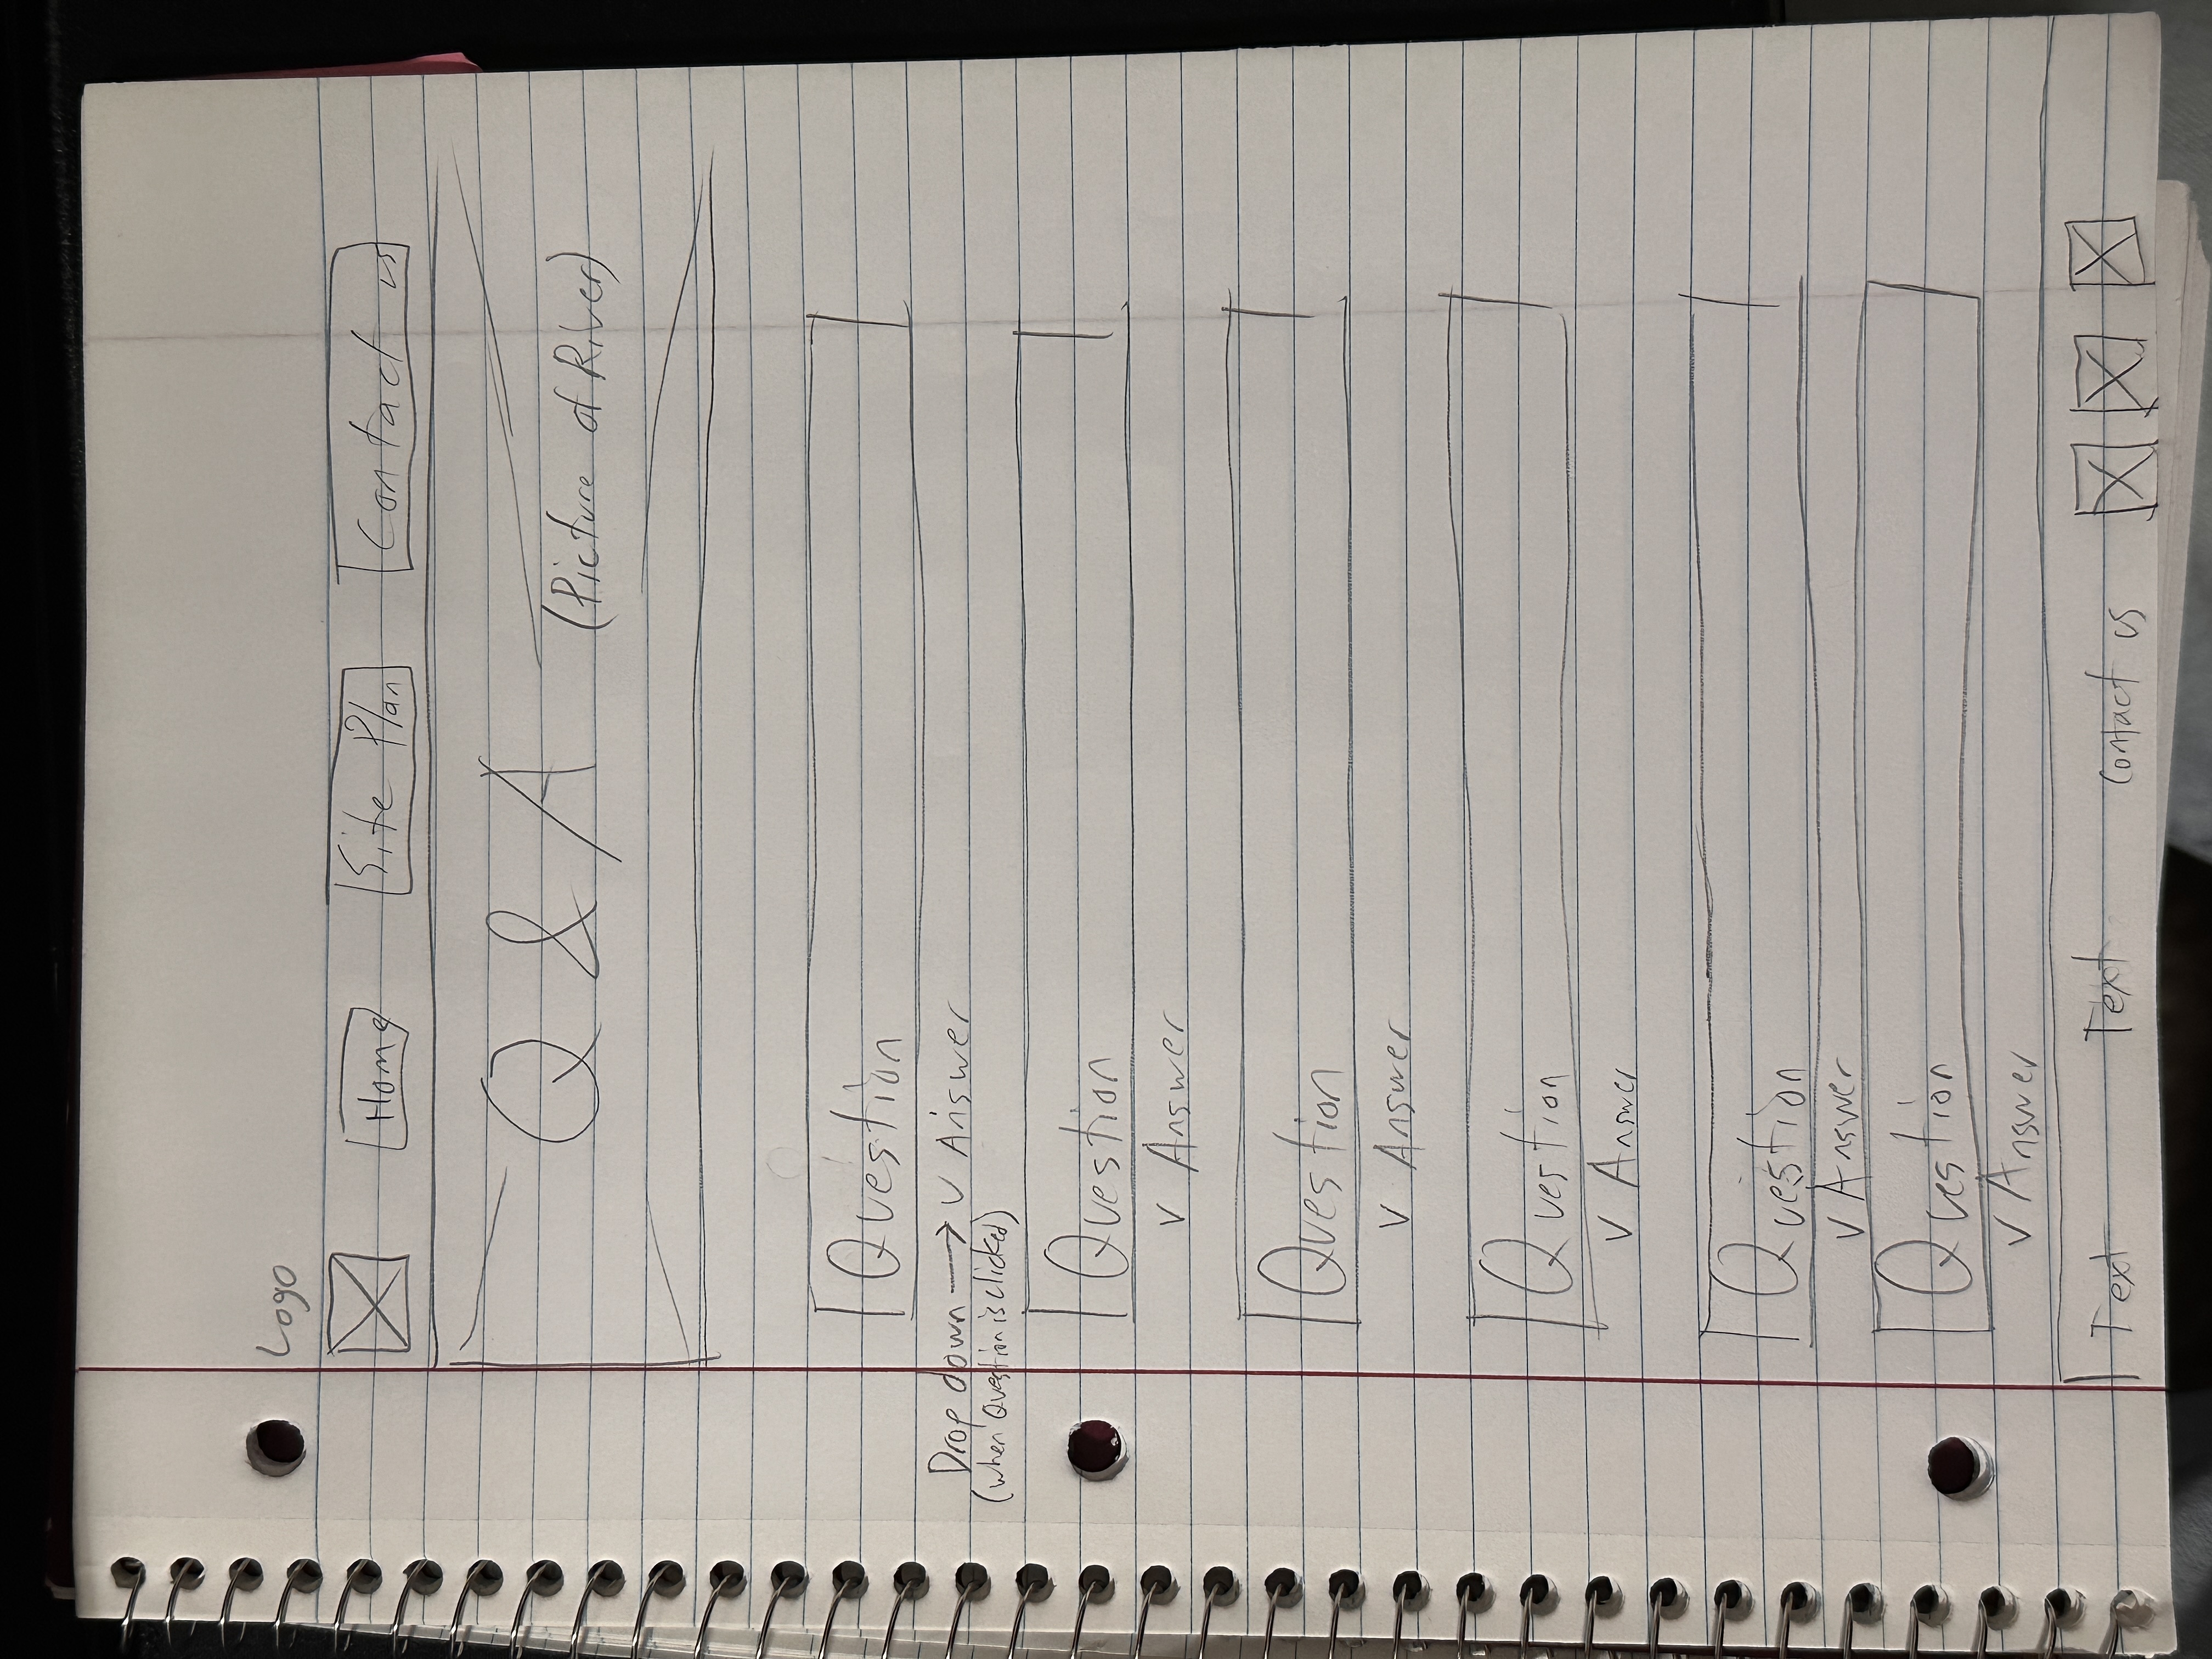 Logo
Home Site Plan Contact us
Q & A (Picture of River)
Question
Drop down → v Answer
(when Question is clicked)
Question
v Answer
Question
v Answer
Question
v Answer
Question
v Answer
Question
v Answer
Text Text Contact us